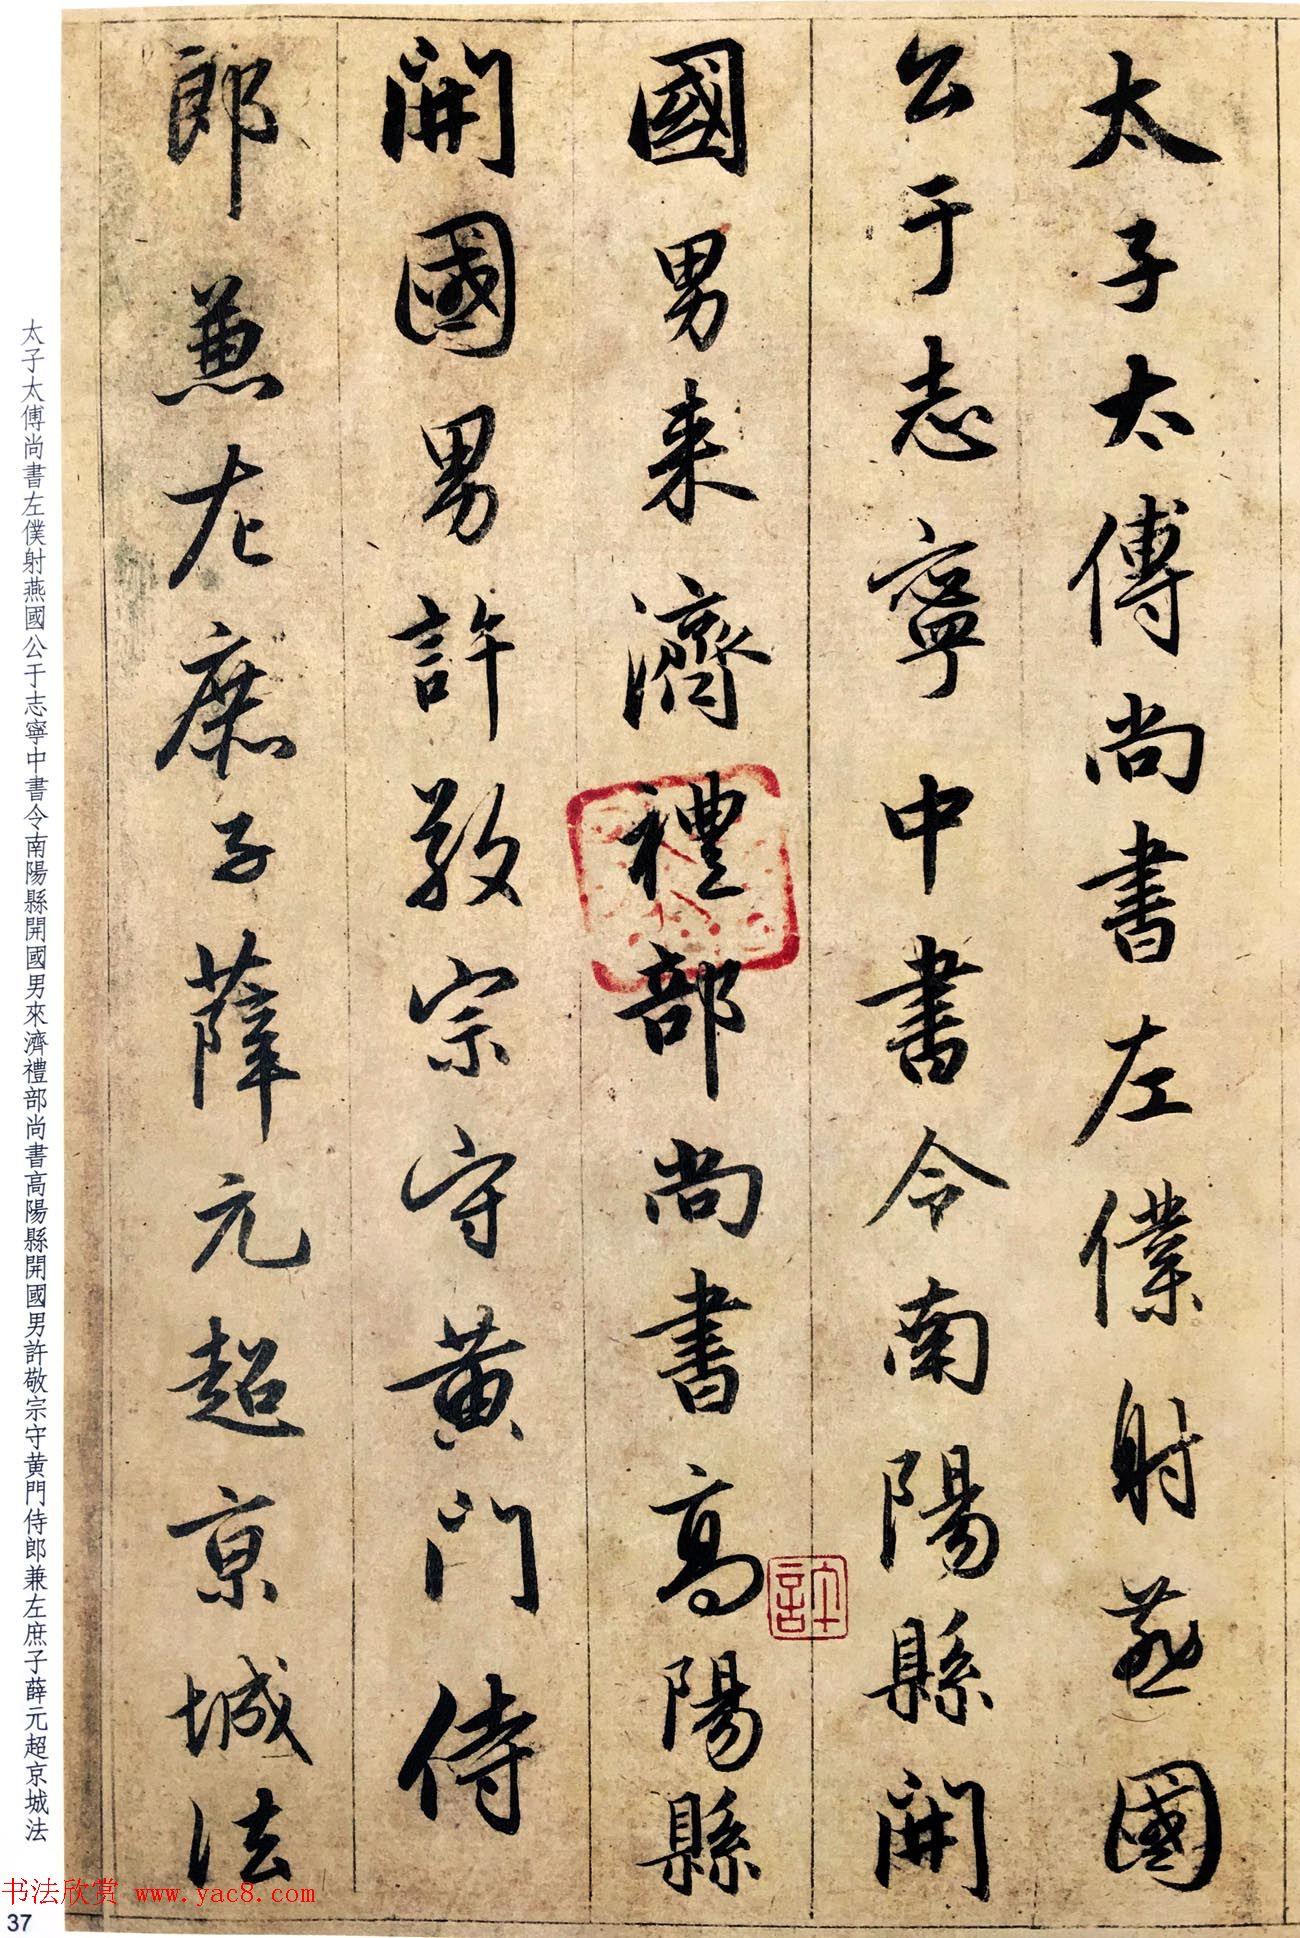 太子太傅尚書左僕射燕國
公于志寧中書令南陽縣開
國男来濟禮部尚書高陽縣
開國男許敬宗守黄門侍
郎兼左庶子薛元超京城法
許
太子太傅尚書左僕射燕國公于志寧中書令南陽縣開國男來濟禮部尚書高陽縣開國男許敬宗守黄門侍郎兼左庶子薛元超京城法
书法欣赏 www.yac8.com
37